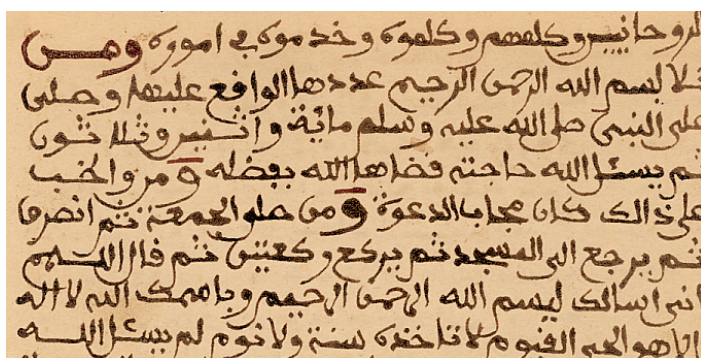 الروحانيين وكلمهم وكلموه وخدموه في اموره ومن
تلا بسم الله الرحمن الرحيم عددها الواقع عليها وصلى
على النبي صلى الله عليه وسلم مائة واثنين وثلاثون
ثم يسئل الله حاجته قضاها الله بفضله ومن واظب
على ذالك كان مجاب الدعوة ومن صلو الجمعة ثم انصرف
ثم يرجع الى المسجد ثم يركع ركعتين ثم قال اللهم
اني اسالك ببسم الله الرحمن الرحيم وباسمك الله لا اله
الا هو الحي القيوم لا تاخذه سنة ولا نوم لم يسئل الله